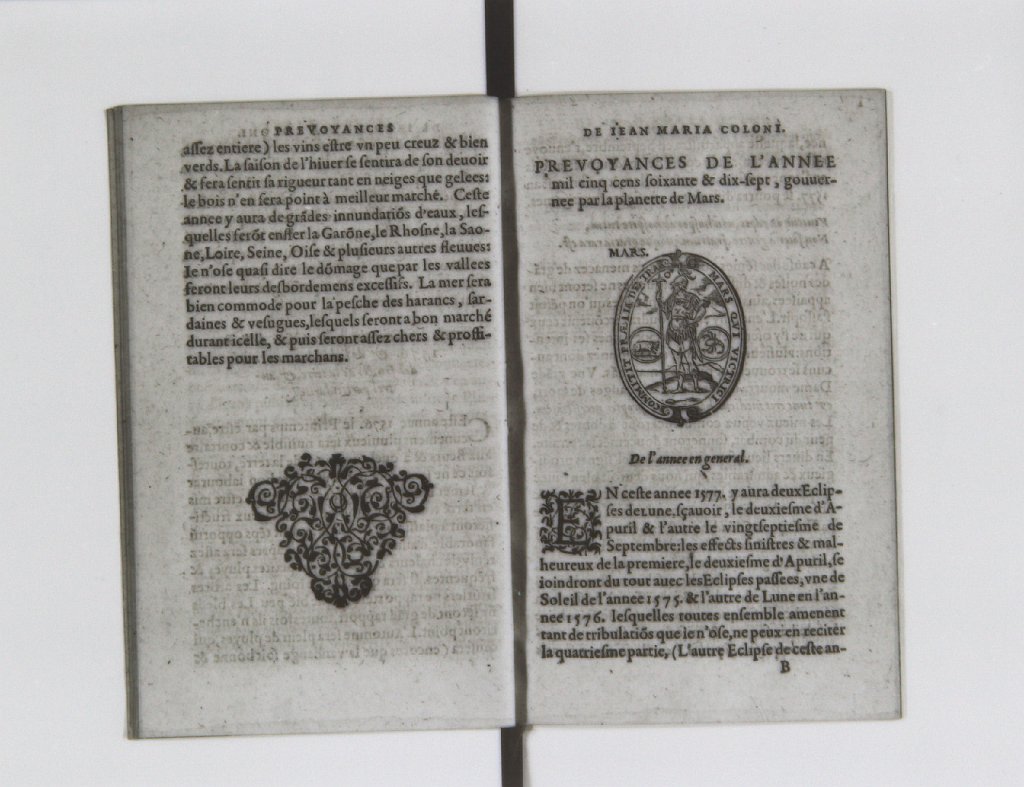 PREVOYANCES
assez entiere) les vins estre vn peu creuz & bien
verds. La saison de l'hiuer se sentira de son deuoir
& fera sentit sa rigueur tant en neiges que gelees:
le bois n'en sera point à meilleur marché. Ceste
annee y aura de grãdes innundatiõs d'eaux, les-
quelles ferõt enfler la Garõne, le Rhosne, la Sao-
ne, Loire, Seine, Oise & plusieurs autres fleuues:
Ie n'ose quasi dire le dõmage que par les vallees
feront leurs desbordemens excessifs. La mer sera
bien commode pour la pesche des harancs, sar-
daines & vesugues, lesquels seront a bon marché
durant icelle, & puis seront assez chers & proffi-
tables pour les marchans.
DE IEAN MARIA COLONI.
PREVOYANCES DE L'ANNEE
mil cinq cens soixante & dix-sept, gouuer-
nee par la planette de Mars.
MARS.
COMMITTIT PRÆLIA DE MARS QVI VICTRICI
De l'annee en general.
EN ceste annee 1577. y aura deux Eclip-
ses de Lune, sçauoir, le deuxiesme d'A-
puril & l'autre le vingtseptiesme de
Septembre: les effects sinistres & mal-
heureux de la premiere, le deuxiesme d'Apuril, se
ioindront du tout auec les Eclipses passees, vne de
Soleil de l'annee 1575. & l'autre de Lune en l'an-
nee 1576. lesquelles toutes ensemble amenent
tant de tribulatiõs que ie n'ose, ne peux en reciter
la quatriesme partie, (L'autre Eclipse de ceste an-
B